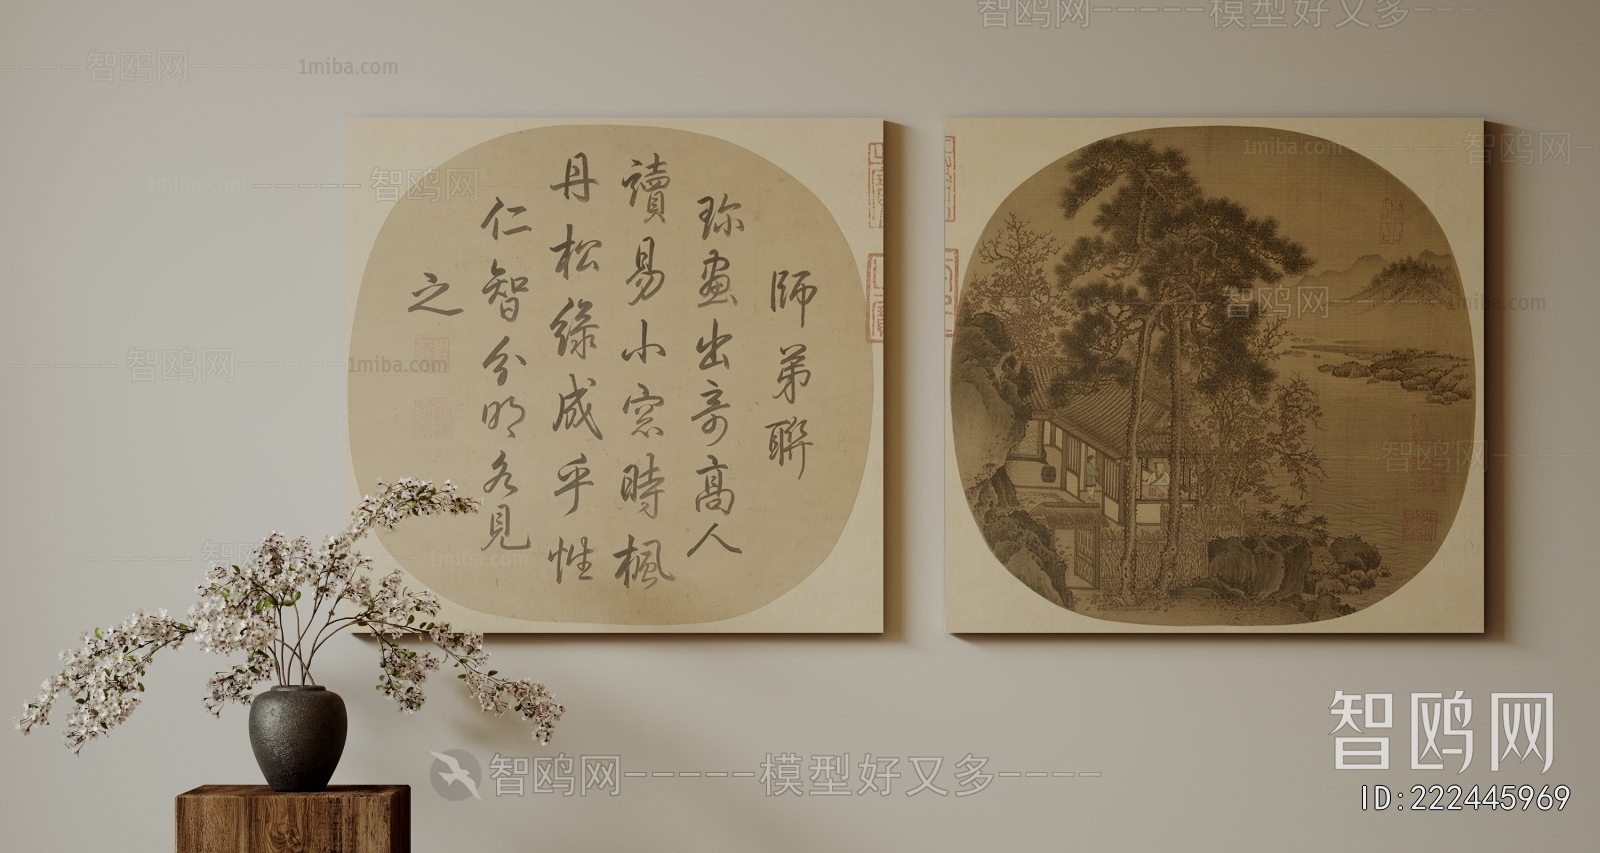 智鸥网-----模型好又多----
智鸥网------1miba.com
1miba.com-----智鸥网
師弟聯
珎畫出奇高人
讀易小窓時楓
丹松綠成乎性
仁智分明各見
之
1miba.com-----智鸥网
智鸥网------1miba.com
智鸥网------1miba.com
智鸥网
智鸥网
1miba.com
智鸥网-----模型好又多----
智鸥网
ID:222445969